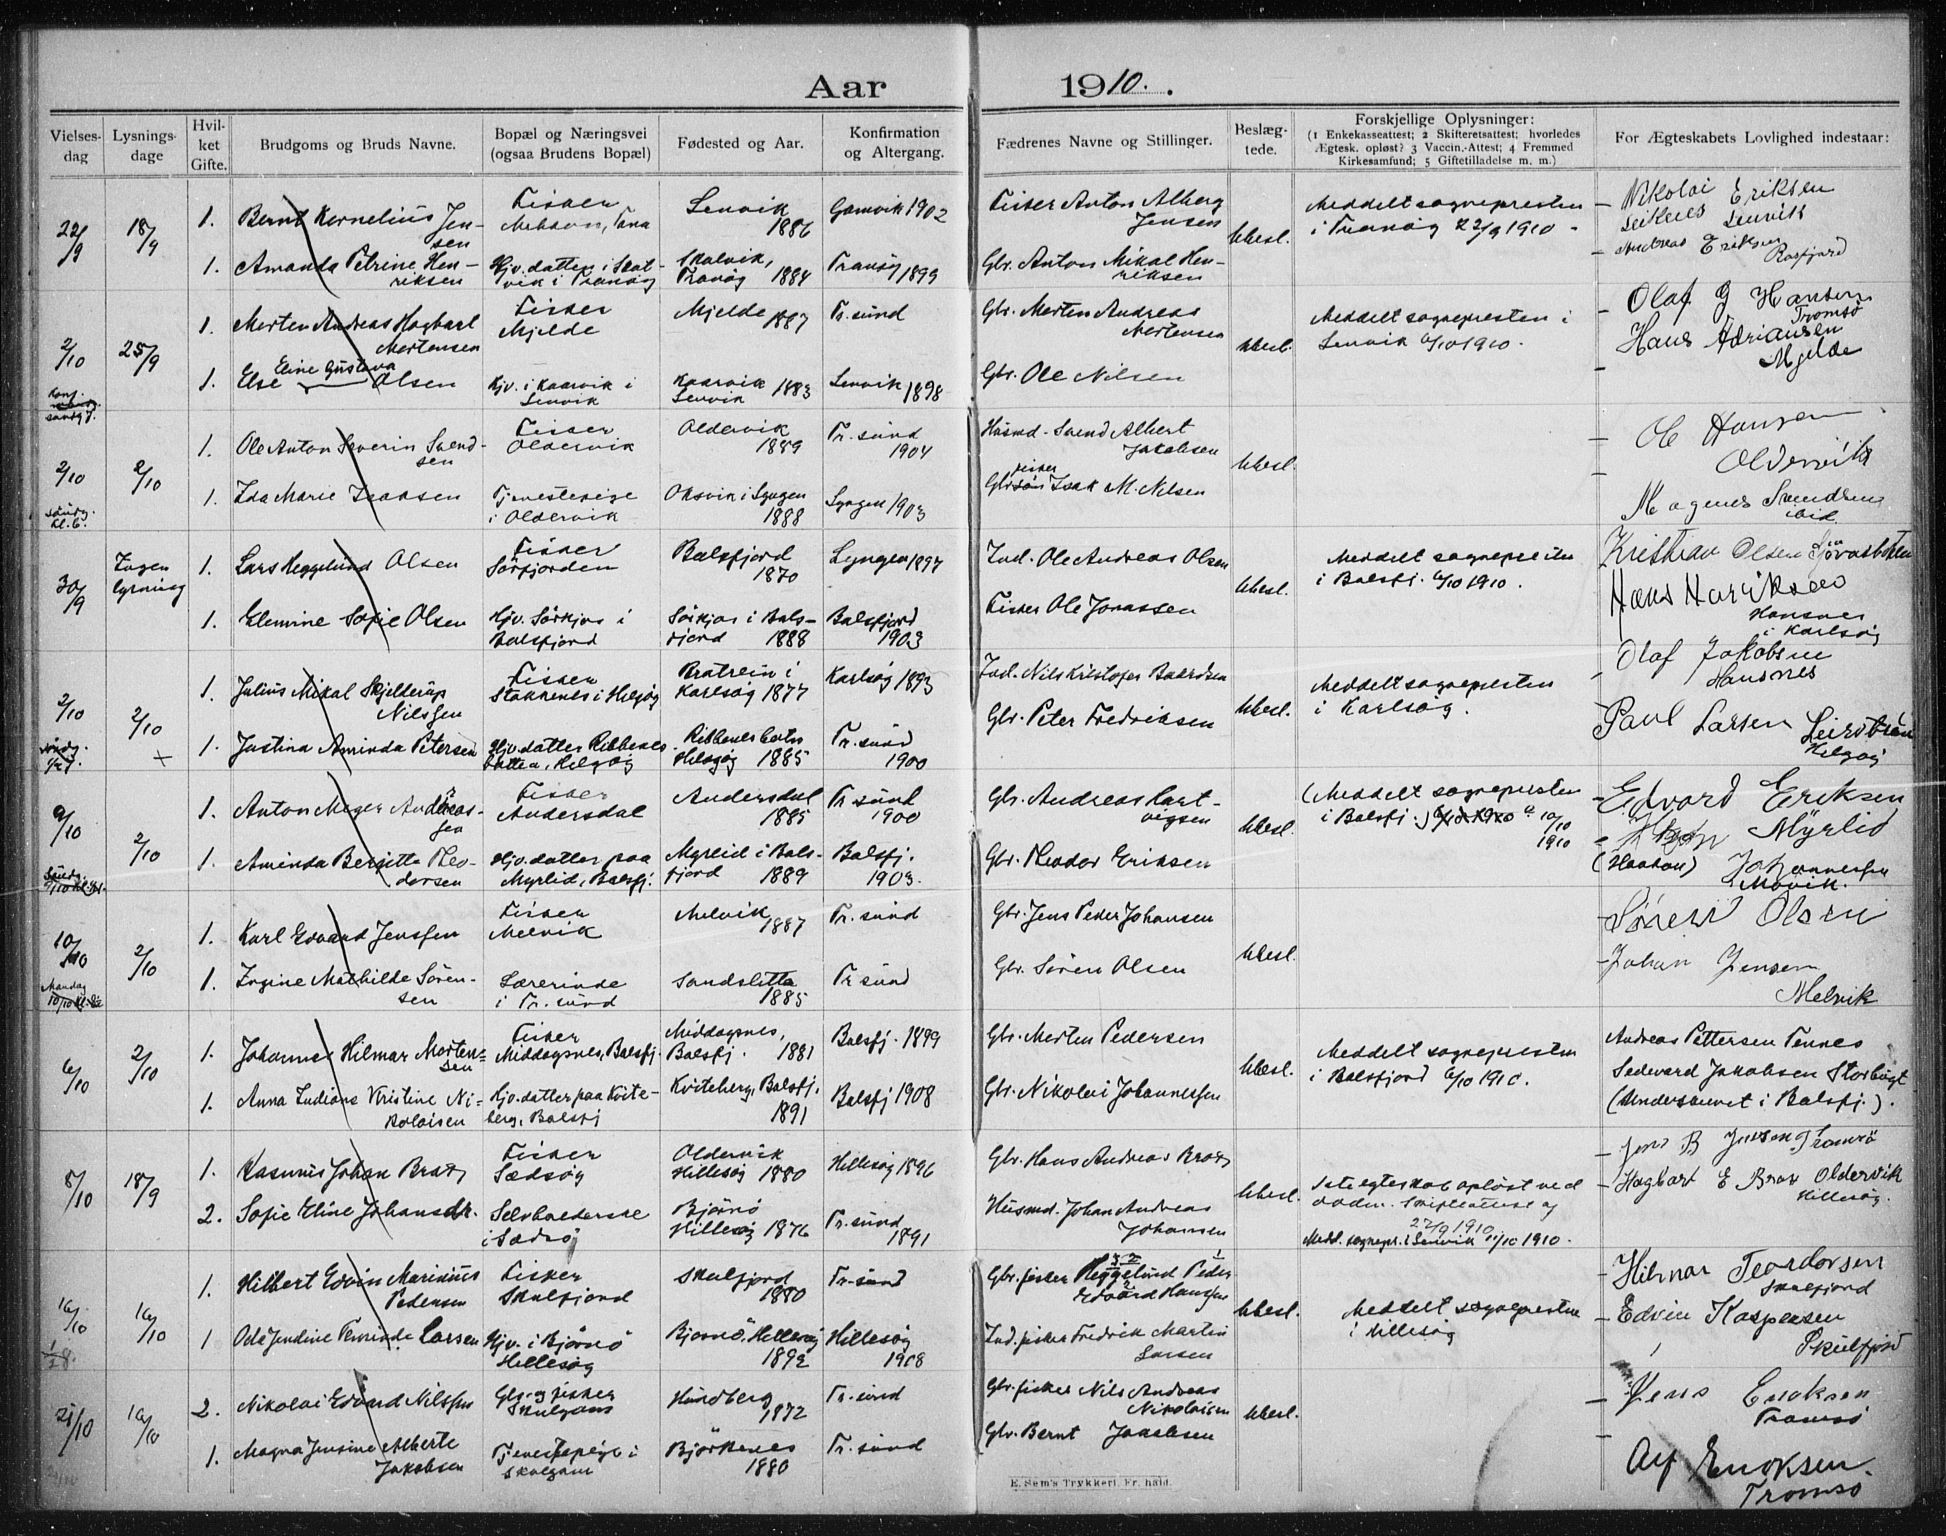 Aar 1910.
Vielses-dag
Lysnings-dage
Hvil-ket Gifte.
Brudgoms og Bruds Navne.
Bopæl og Næringsvei (ogsaa Brudens Bopæl)
Fødested og Aar.
Konfirmation og Altergang.
Fædrenes Navne og Stillinger.
Beslæg-tede.
Forskjellige Oplysninger:
(1 Enkekasseattest; 2 Skifteretsattest; hvorledes Ægtesk. opløst? 3 Vaccin.-Attest; 4 Fremmed Kirkesamfund; 5 Giftetilladelse m. m.)
For Ægteskabets Lovlighed indestaar:
22/9 18/9 1. Bernt Kornelius Jen-sen Fisker Mehavn, Tana Lenvik 1886 Gamvik 1902 Fisker Anton Alberg Jensen Ubesl. Meddelt sognepresten i Tranøy 22/9 1910 - Nikolai Eriksen Lenvik
1. Amanda Petrine Hen-riksen Gjv. datter i Skat-vik i Tranøy Skatvik, Tranøy 1884 Tranøy 1899 Gbr. Anton Mikal Hen-riksen Andreas Eriksen Rosfjord
2/10 25/9 1. Morten Andreas Hagbart Mortensen Fisker Mjelde Mjelde 1887 Tr.sund Gbr. Morten Andreas Mortensen Ubesl. Meddelt sognepresten i Lenvik 6/10 1910. Olaf G Hansen Tromsø
1. Else Eline Gustava Olsen Gjv. i Kaarvik i Lenvik Kaarvik Lenvik 1883 Lenvik 1898 Gbr. Ole Nilsen Hans Adriansen Mjelde
2/10 2/10 1. Ole Anton Severin Svend-sen Fisker Oldervik Oldervik 1889 Tr.sund 1904 Husmd. Svend Albert Jakobsen Ubesl. Ole Hansen Oldervik
søndg. kl. 6. 1. Ida Marie Isaksen Tjenestepige i Oldervik Oksvik i Lyngen 1888 Lyngen 1903 Gbr. fisker Isak M. Nilsen Magnus Svendsen ibid.
30/9 Ingen lysning 1. Lars Heggelund Olsen Fisker Sørfjorden Balsfjord 1870 Lyngen 1897 Ind. Ole Andreas Olsen Ubesl. Meddelt sognepresten i Balsfj. 6/10 1910. Kristian Olsen
1. Elemine Sofie Olsen Gjv. Sørkjos i Balsfjord Sørkjos i Bals-fjord 1888 Balsfjord 1903 Fisker Ole Jonassen Hans Henriksen Hansnes i Karlsøy
2/10 2/10 1. Julius Mikal Skjelderup Nilsen Fisker Stakkenes i Helgøy Bratrein i Karlsøy 1877 Karlsøy 1893 Ind. Nils Kristofer Baardsen Ubesl. Meddelt sognepresten i Karlsøy. Olaf Jakobsen Hansnes
1. Justina Aminda Petersen Gjv. datter Ribbenes-botten, Helgøy Ribbenesbotn Helgøy 1885 Tr.sund 1900 Gbr. Peter Fredriksen Paul Larsen Helgøy
9/10 2/10 1. Anton Meyer Andreas-sen Fisker Andersdal Andersdal 1885 Tr sund 1900 Gbr. Andreas Hart-vigsen Ubesl. (Meddelt sognepresten i Balsfj.) 10/10 1910 Edvard Eriksen Myrlid
1. Aminda Bergitte Teo-dorsen Gjv. datter paa Myrlid, Balsfj. Myrlid i Bals-fjord 1889 Balsfj. 1903. Gbr. Teodor Eriksen (Haakon) Johannessen Movik.
10/10 2/10 1. Karl Edvard Jenssen Fisker Melvik Melvik 1887 Tr.sund Gbr. Jens Peder Johansen Ubesl. Sören Olsen
Mandag 1. Ingine Mathilde Sören-sen Lærerinde i Tr.sund Sandsletta 1885 Tr sund Gbr. Søren Olsen Johan Jensen Melvik
6/10 2/10 1. Johannes Hilmar Morten-sen Fisker Middagsnes, Balsfj. Middagsnes, Balsfj. 1881 Balsfj. 1899 Gbr. Morten Pedersen Ubesl. Meddelt sognepresten i Balsfjord 6/10 1910. Andreas Pettersen Tennes
1. Anna Indiane Kristine Ni-kolaisen Gjv. datter paa Kvite-berg, Balsfj Kviteberg, Balsfj. 1891 Balsfj 1908 Gbr. Nikolai Johannessen Sedvard Jakobsen Storbugt (Underskrevet i Balsfj.).
8/10 18/9 1. Rasmus Johan Brox Fisker Sædsøy Oldervik Hillesøy 1880 Hillesøy 1896 Gbr. Hans Andreas Brox Ubesl. 1ste egteskab opløst ved døden. Skifteattest af 27/9 1910. Medd. sognepr. i Lenvik 11/10 1910. Jens B Jensen Tromsø
2. Sofie Eline Johansdr. Selvholdende i Sædsø Bjørnø Hillesøy 1876 Tr.sund 1891 Husmd. Johan Andreas Johansen Hagbart E Brox Oldervik Hillesøy.
16/10 16/10 1. Hilbert Edvin Marinius Pedersen Fisker Skulfjord Skulfjord 1880 Tr.sund Gbr. fisker Heggelund Peder Edvard Hanssen Ubesl. Meddelt sognepresten i Hillesøy Hilmar Teordorsen Skulfjord
1 Oda Jendine Larsen Gjv. i Bjørnø Hillesøy Bjørnø, Hillesøy 1892 Hillesøy 1908 Ind. fisker Fredrik Martin Larsen Edvin Kaspersen Skulfjord
21/10 16/10 2. Nikolai Edvard Nilssen Gbr. og fisker Skulgam Hundberg 1872 Tr.sund Gbr. fisker Nils Andreas Nikolaisen Ubesl. Jens Enoksen Tromsø
1. Magna Jensine Alberte Jakobsen Tjenestepige i Skulgam Bjørkenes 1880 Tr.sund Gbr. Bernt Jakobsen Alf Enoksen. Tromsø
E. Sem's Trykkeri, Fr.hald.